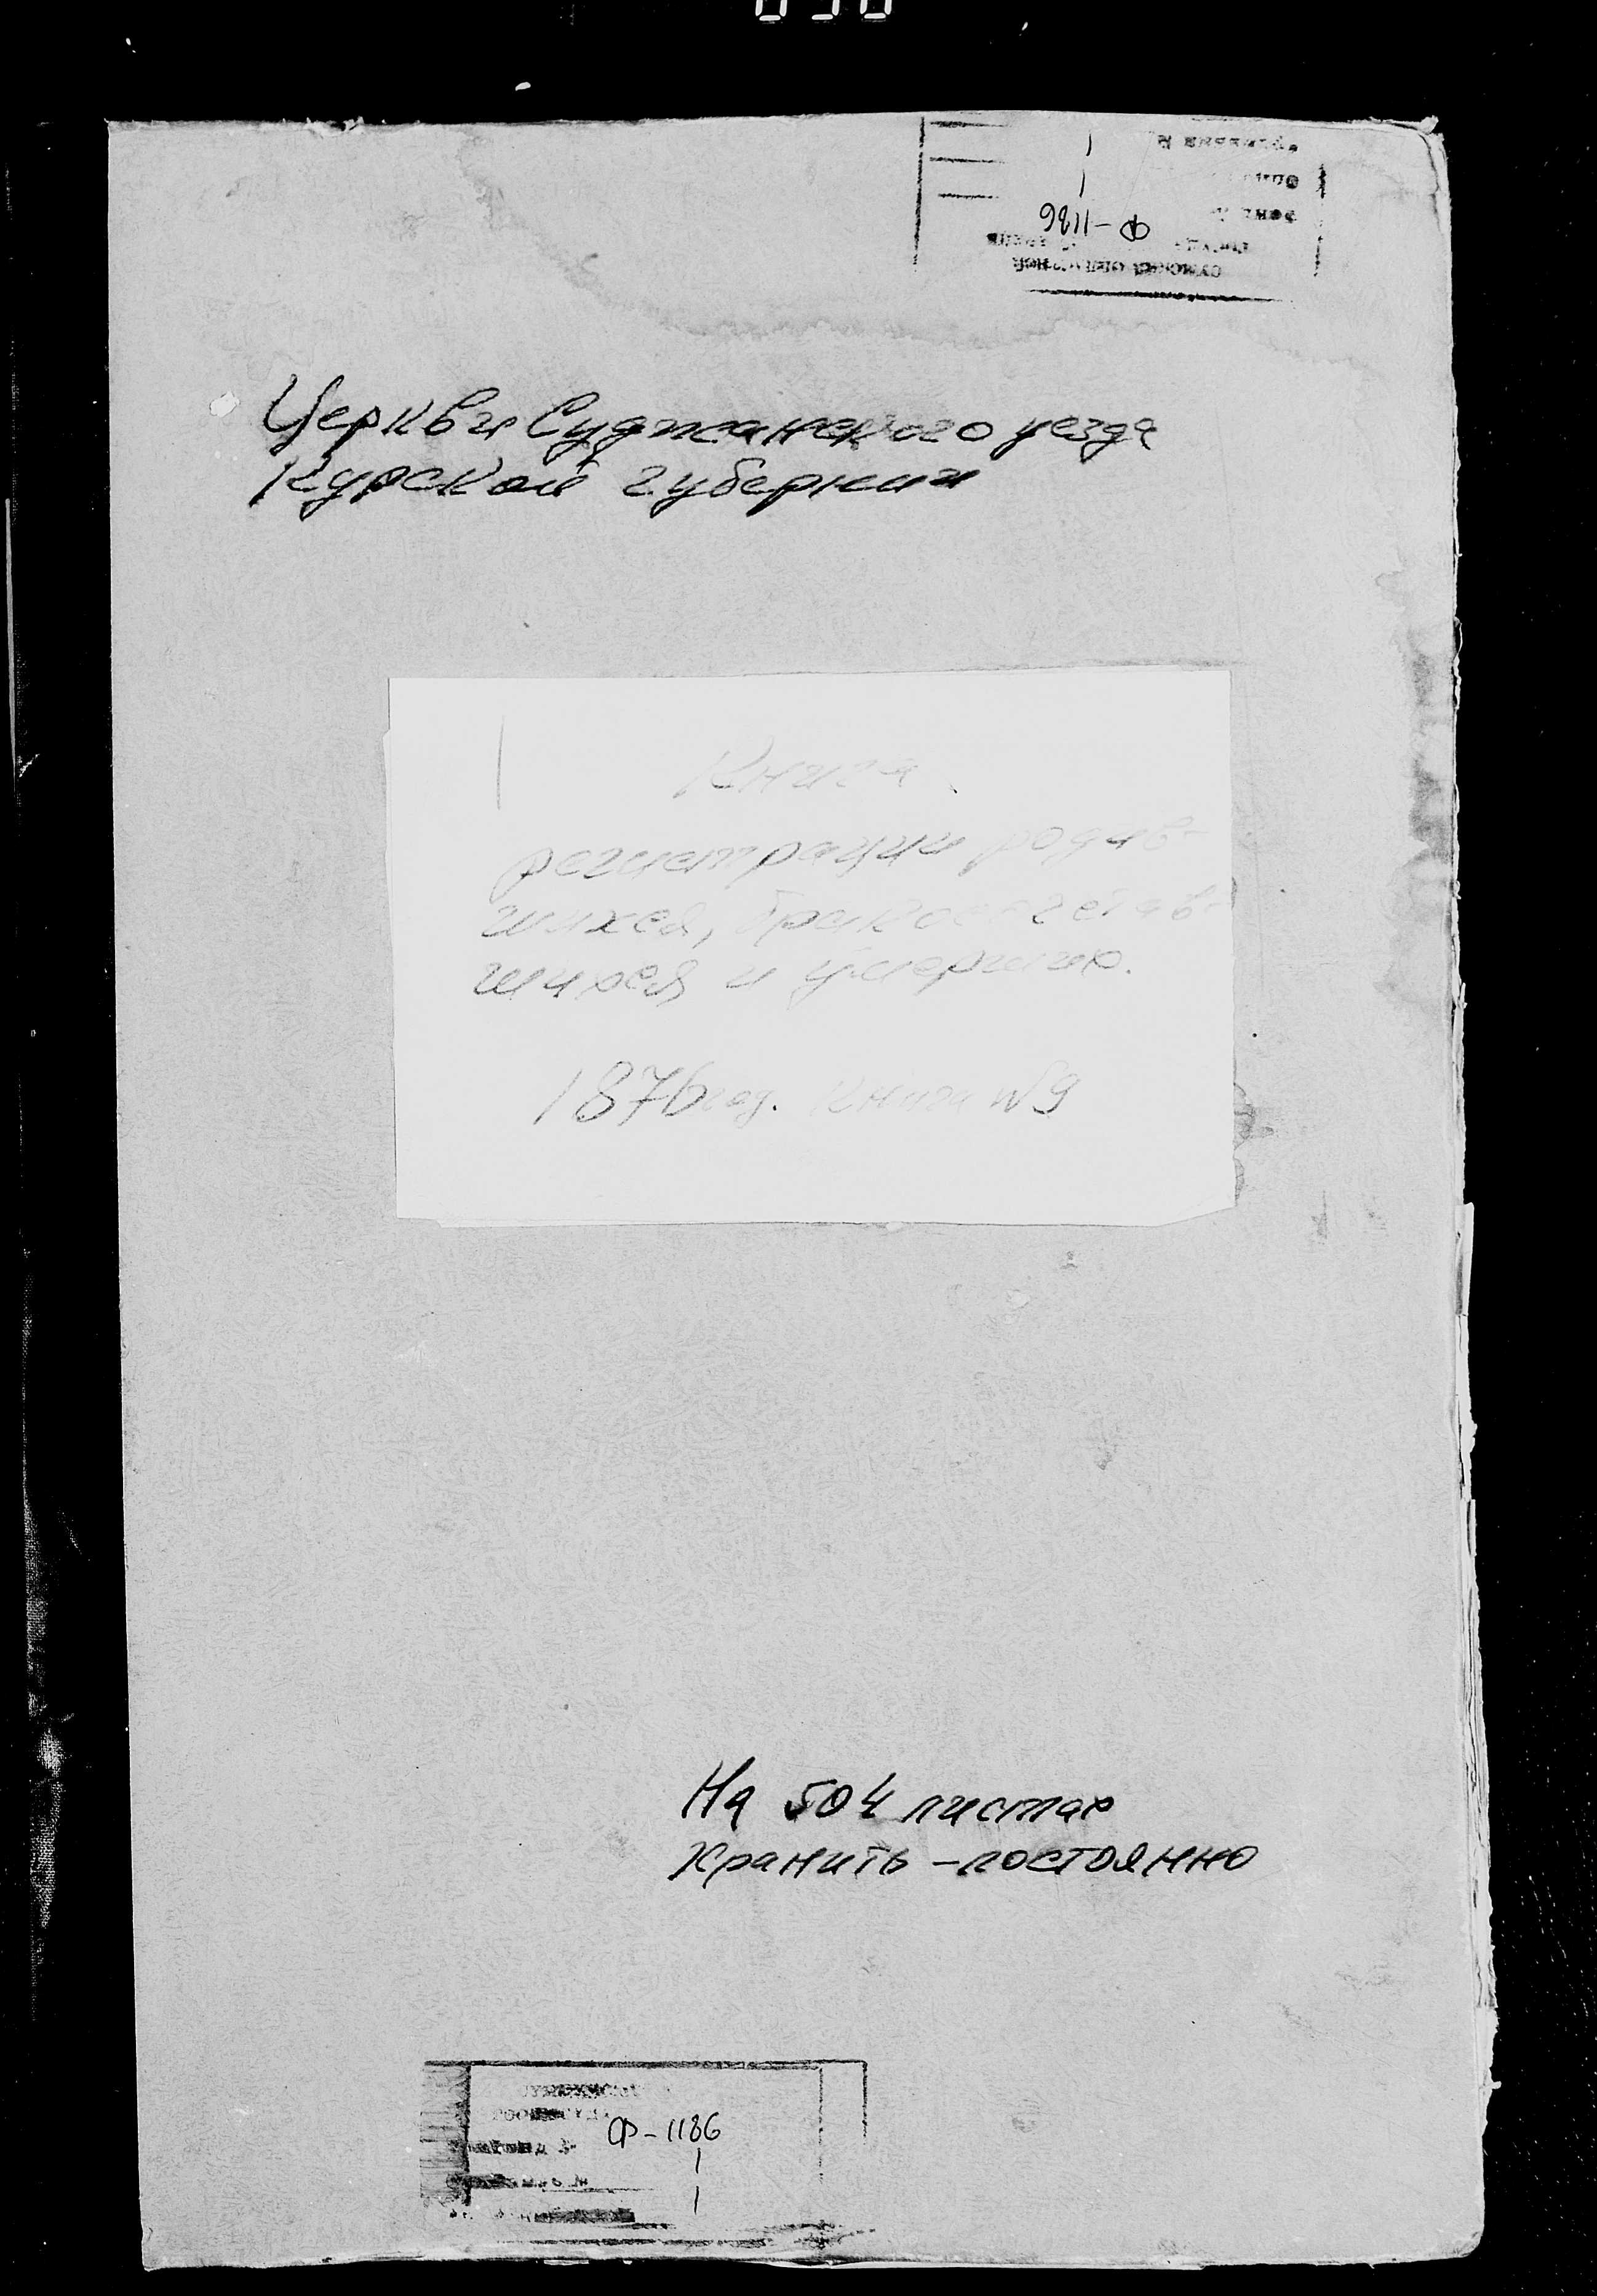 Ф-1186
1
1
Церкви Суджанского уезда
Курской губернии
Книга
регистрации родив-
шихся, бракосочетав-
шихся и умерших.
1876 год. Книга №9
На 504 листах
Хранить - постоянно
Ф-1186
1
1